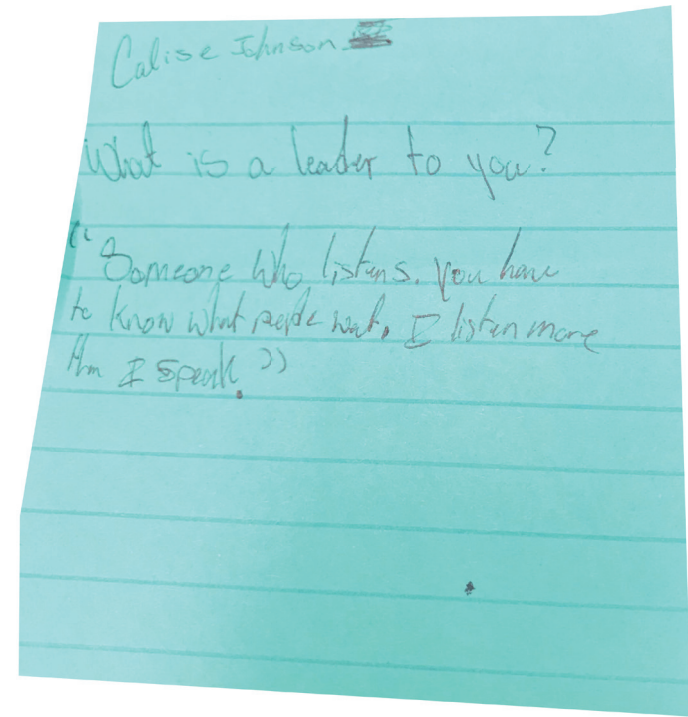 Calise Johnson
What is a leader to you?
"Someone who listens. You have
to know what people want. I listen more
than I speak."